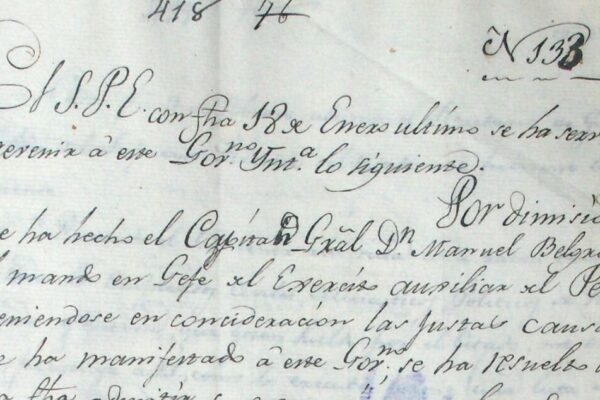 418 76
N 133
El S. P. E. con fha 18 de Enero ultimo se ha serv
revenir â este Gov.no Ynt.a lo siguiente.
Por dimisio
e ha hecho el Capitan Grâl Dn Manuel Belgra
l mando en Gefe del Exercito auxiliar del Pe
eniendose en concideración las justas causa
e ha manifestado â este Gov.no, se ha resuelto
fha admitir